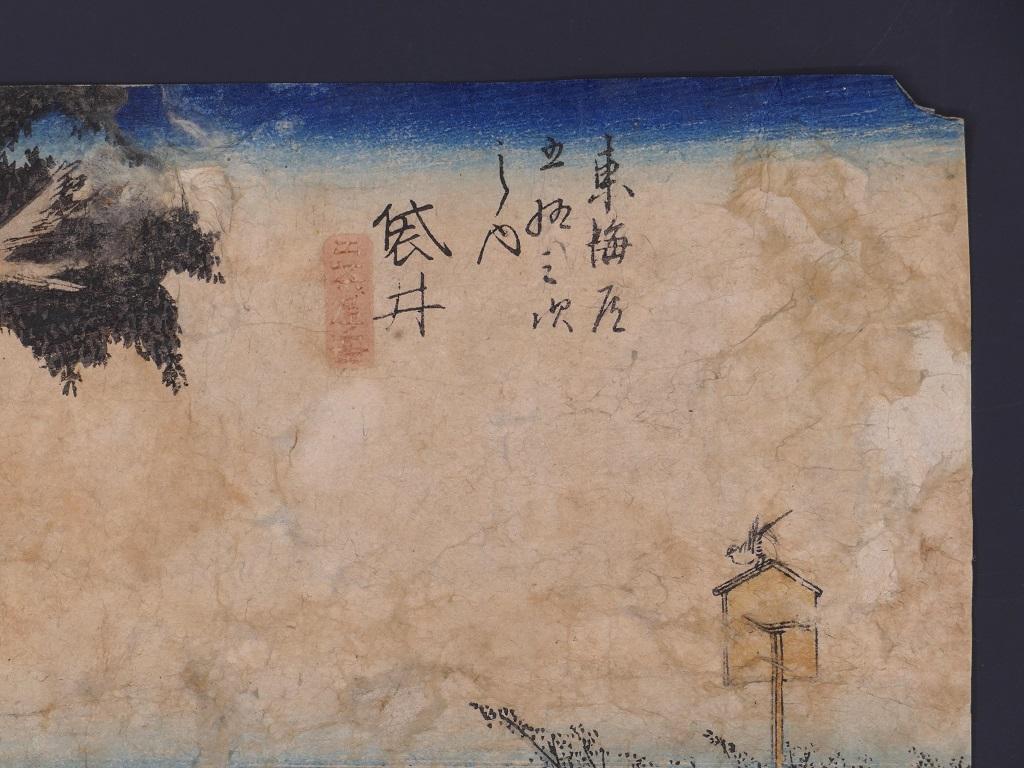 東海道
五拾三次
之内
袋井